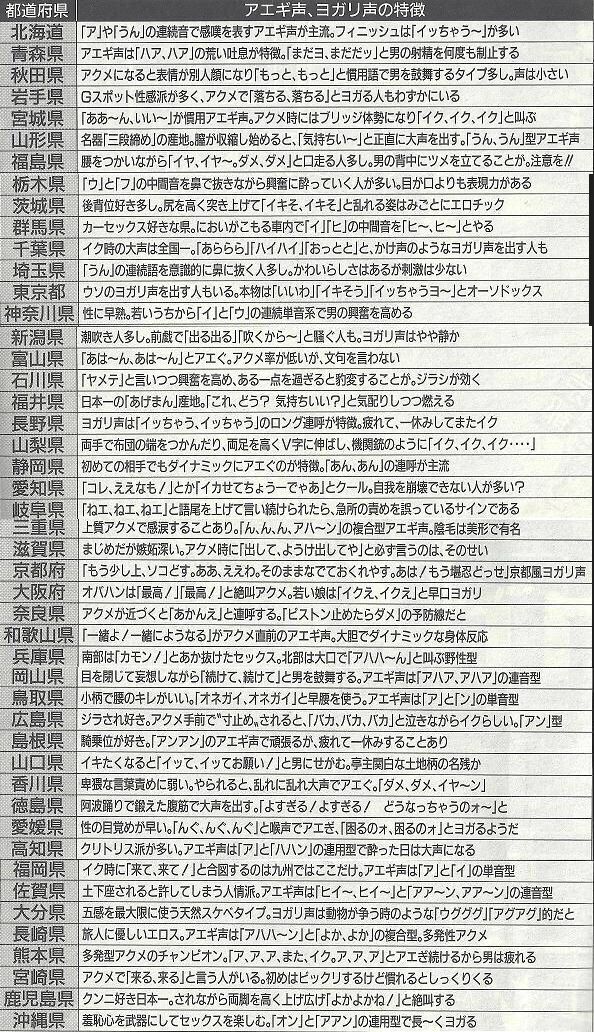 都道府県 アエギ声、ヨガリ声の特徴
北海道 「ア」や「うん」の連続音で感嘆を表すアエギ声が主流。フィニッシュは「イッちゃう〜」が多い
青森県 アエギ声は「ハア、ハア」の荒い吐息が特徴。「まだヨ、まだだッ」と男の射精を何度も制止する
秋田県 アクメになると表情が別人顔になり「もっと、もっと」と慣用語で男を鼓舞するタイプ多し。声は小さい
岩手県 Gスポット性感派が多く、アクメで「落ちる、落ちる」とヨガる人もわずかにいる
宮城県 「ああ〜ん、いい〜」が慣用アエギ声。アクメ時にはブリッジ体勢になり「イク、イク、イク」と叫ぶ
山形県 名器「三段締め」の産地。膣が収縮し始めると、「気持ちい〜」と正直に大声を出す。「うん、うん」型アエギ声
福島県 腰をつかいながら「イヤ、イヤ〜。ダメ、ダメ」と口走る人多し。男の背中にツメを立てることが。注意を!!
栃木県 「ウ」と「フ」の中間音を鼻で抜きながら興奮に酔っていく人が多い。目が口よりも表現力がある
茨城県 後背位好き多し。尻を高く突き上げて「イキそ、イキそ」と乱れる姿はみごとにエロチック
群馬県 カーセックス好きな県。においがこもる車内で「イ」「ヒ」の中間音を「ヒ〜、ヒ〜」とやる
千葉県 イク時の大声は全国一。「あららら」「ハイハイ」「おっとと」と、かけ声のようなヨガリ声を出す人も
埼玉県 「うん」の連続語を意識的に鼻に抜く人多し。かわいらしさはあるが刺激は少ない
東京都 ウソのヨガリ声を出す人もいる。本物は「いいわ」「イキそう」「イッちゃうヨ〜」とオーソドックス
神奈川県 性に早熟。若いうちから「イ」と「ウ」の連続単音系で男の興奮を高める
新潟県 潮吹き人多し。前戯で「出る出る」「吹くから〜」と騒ぐ人も。ヨガリ声はやや静か
富山県 「あは〜ん、あは〜ん」とアエぐ。アクメ率が低いが、文句を言わない
石川県 「ヤメテ」と言いつつ興奮を高め、ある一点を過ぎると豹変することが。ジラシが効く
福井県 日本一の「あげまん」産地。「これ、どう? 気持ちいい?」と気配りしつつ燃える
長野県 ヨガリ声は「イッちゃう、イッちゃう」のロング連呼が特徴。疲れて、一休みしてまたイク
山梨県 両手で布団の端をつかんだり、両足を高くV字に伸ばし、機関銃のように「イク、イク、イク・・・・」
静岡県 初めての相手でもダイナミックにアエぐのが特徴。「あん、あん」の連呼が主流
愛知県 「コレ、ええなも!」とか「イカせてちょうーでゃあ」とクール。自我を崩壊できない人が多い?
岐阜県 「ねエ、ねエ、ねエ」と語尾を上げて言い続けられたら、急所の責めを誤っているサインである
三重県 上質アクメで感涙することあり。「ん、ん、ん、アハ〜ン」の複合型アエギ声。陰毛は美形で有名
滋賀県 まじめだが嫉妬深い。アクメ時に「出して、ようけ出してや」と必ず言うのは、そのせい
京都府 「もう少し上、ソコどす。ああ、ええわ。そのままなでておくれやす。あは!もう堪忍どっせ」京都風ヨガリ声
大阪府 オバハンは「最高!」「最高!」と絶叫アクメ。若い娘は「イクえ、イクえ」と早口ヨガリ
奈良県 アクメが近づくと「あかんえ」と連呼する。「ピストン止めたらダメ」の予防線だと
和歌山県 「一緒よ!一緒にようなる」がアクメ直前のアエギ声。大胆でダイナミックな身体反応
兵庫県 南部は「カモン!」とあか抜けたセックス。北部は大口で「アハハ〜ん」と叫ぶ野性型
岡山県 目を閉じて妄想しながら「続けて、続けて」と男を鼓舞する。アエギ声は「アハア、アハア」の連音型
鳥取県 小柄で腰のキレがいい。「オネガイ、オネガイ」と早腰を使う。アエギ声は「ア」と「ン」の単音型
広島県 ジラされ好き。アクメ手前で〝寸止め〟されると、「バカ、バカ、バカ」と泣きながらイクらしい。「アン」型
島根県 騎乗位が好き。「アンアン」のアエギ声で頑張るが、疲れて一休みすることあり
山口県 イキたくなると「イッて、イッてお願い!」と男にせがむ。亭主関白な土地柄の名残か
香川県 卑猥な言葉責めに弱い。やられると、乱れに乱れ大声でアエぐ。「ダメ、ダメ、イヤ〜ン」
徳島県 阿波踊りで鍛えた腹筋で大声を出す。「よすぎる!よすぎる! どうなっちゃうのォ〜」と
愛媛県 性の目覚めが早い。「んぐ、んぐ、んぐ」と喉声でアエぎ、「困るのォ、困るのォ」とヨガるようだ
高知県 クリトリス派が多い。アエギ声は「ア」と「ハハン」の連用型で酔った日は大声になる
福岡県 イク時に「来て、来て!」と合図するのは九州ではここだけ。アエギ声は「ア」と「イ」の単音型
佐賀県 土下座されると許してしまう人情派。アエギ声は「ヒイ〜、ヒイ〜」と「アア〜ン、アア〜ン」の連音型
大分県 五感を最大限に使う天然スケベタイプ。ヨガリ声は動物が争う時のような「ウグググ」「アグアグ」的だと
長崎県 旅人に優しいエロス。アエギ声は「アハハ〜ン」と「よか、よか」の複合型。多発性アクメ
熊本県 多発型アクメのチャンピオン。「ア、ア、ア、また、イク。ア、ア、ア」とアエぎ続けるから男は疲れる
宮崎県 アクメで「来る、来る」と言う人がいる。初めはビックリするけど慣れるとしっくりくる
鹿児島県 クンニ好き日本一。されながら両脚を高く上げ広げ「よかよかね!」と絶叫する
沖縄県 羞恥心を武器にしてセックスを楽しむ。「オン」と「アアン」の連用型で長〜くヨガる